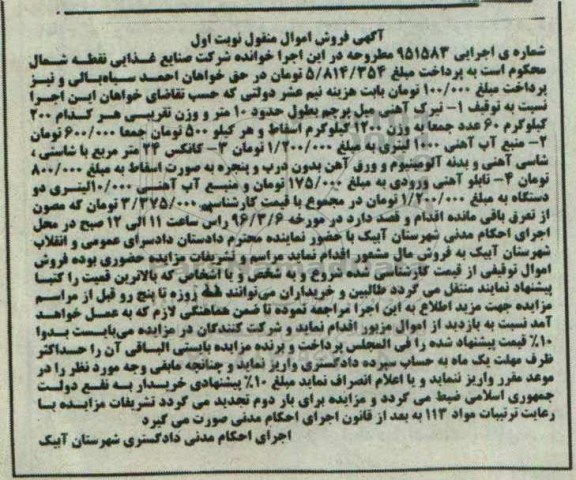 آگهی فروش اموال منقول نوبت اول
شماره ی اجرایی ۹۵۱۵۸۳ مطروحه در این اجرا خوانده شرکت صنایع غذایی نقطه شمال
محکوم است به پرداخت مبلغ ۵/۸۱۴/۳۵۴ تومان در حق خواهان احمد سیاه‌بالی و نیز
پرداخت مبلغ ۱۰۰/۰۰۰ تومان بابت هزینه نیم عشر دولتی که حسب تقاضای خواهان این اجرا
نسبت به توقیف ۱- تیرک آهنی میل پرچم بطول حدود ۱۰ متر و وزن تقریبی هر کدام ۲۰۰
کیلوگرم ۶۰ عدد جمعا به وزن ۱۲۰۰ کیلوگرم اسقاط و هر کیلو ۵۰۰ تومان جمعا ۶۰۰/۰۰۰ تومان
۲- منبع آب آهنی ۱۰۰۰ لیتری به مبلغ ۱/۲۰۰/۰۰۰ تومان ۳- کانکس ۲۴ متر مربع با شاسی ،
شاسی آهنی و بدنه آلومینیوم و ورق آهن بدون درب و پنجره به صورت اسقاط به مبلغ ۸۰۰/۰۰۰
تومان ۴- تابلو آهنی ورودی به مبلغ ۱۷۵/۰۰۰ تومان و منبع آب آهنی ۱۰/۰۰۰لیتری دو
دستگاه به مبلغ ۱/۲۰۰/۰۰۰ تومان در مجموع با قیمت کارشناسی ۳/۳۷۵/۰۰۰ تومان که مصون
از تعرق باقی مانده اقدام و قصد دارد در مورخه ۹۶/۳/۶ راس ساعت ۱۱ الی ۱۲ صبح در محل
اجرای احکام مدنی شهرستان آبیک با حضور نماینده محترم دادستان دادسرای عمومی و انقلاب
شهرستان آبیک به فروش مال مشعور اقدام نماید مراسم و تشریفات مزایده حضوری بوده فروش
اموال توقیفی از قیمت کارشناسی شده شروع و به شخص و یا اشخاص که بالاترین قیمت را کتبا
پیشنهاد نمایند منتقل می گردد طالبین و خریداران می‌توانند همه روزه تا پنج رو قبل از مراسم
مزایده جهت مزید اطلاع به این اجرا مراجعه نموده تا ضمن هماهنگی لازم که به عمل خواهد
آمد نسبت به بازدید از اموال مزبور اقدام نماید و شرکت کنندگان در مزایده می‌بایست بدوا
۱۰٪ قیمت پیشنهاد شده را فی المجلس پرداخت و برنده مزایده بایستی الباقی آن را حداکثر
ظرف مهلت یک ماه به حساب سپرده دادگستری واریز نماید و چنانچه مابقی وجه مورد نظر را در
موعد مقرر واریز ننماید و یا اعلام انصراف نماید مبلغ ۱۰٪ پیشنهادی خریدار به نفع دولت
جمهوری اسلامی ضبط می گردد و مزایده برای بار دوم تجدید می گردد تشریفات مزایده با
رعایت ترتیبات مواد ۱۱۳ به بعد از قانون اجرای احکام مدنی صورت می گیرد
اجرای احکام مدنی دادگستری شهرستان آبیک